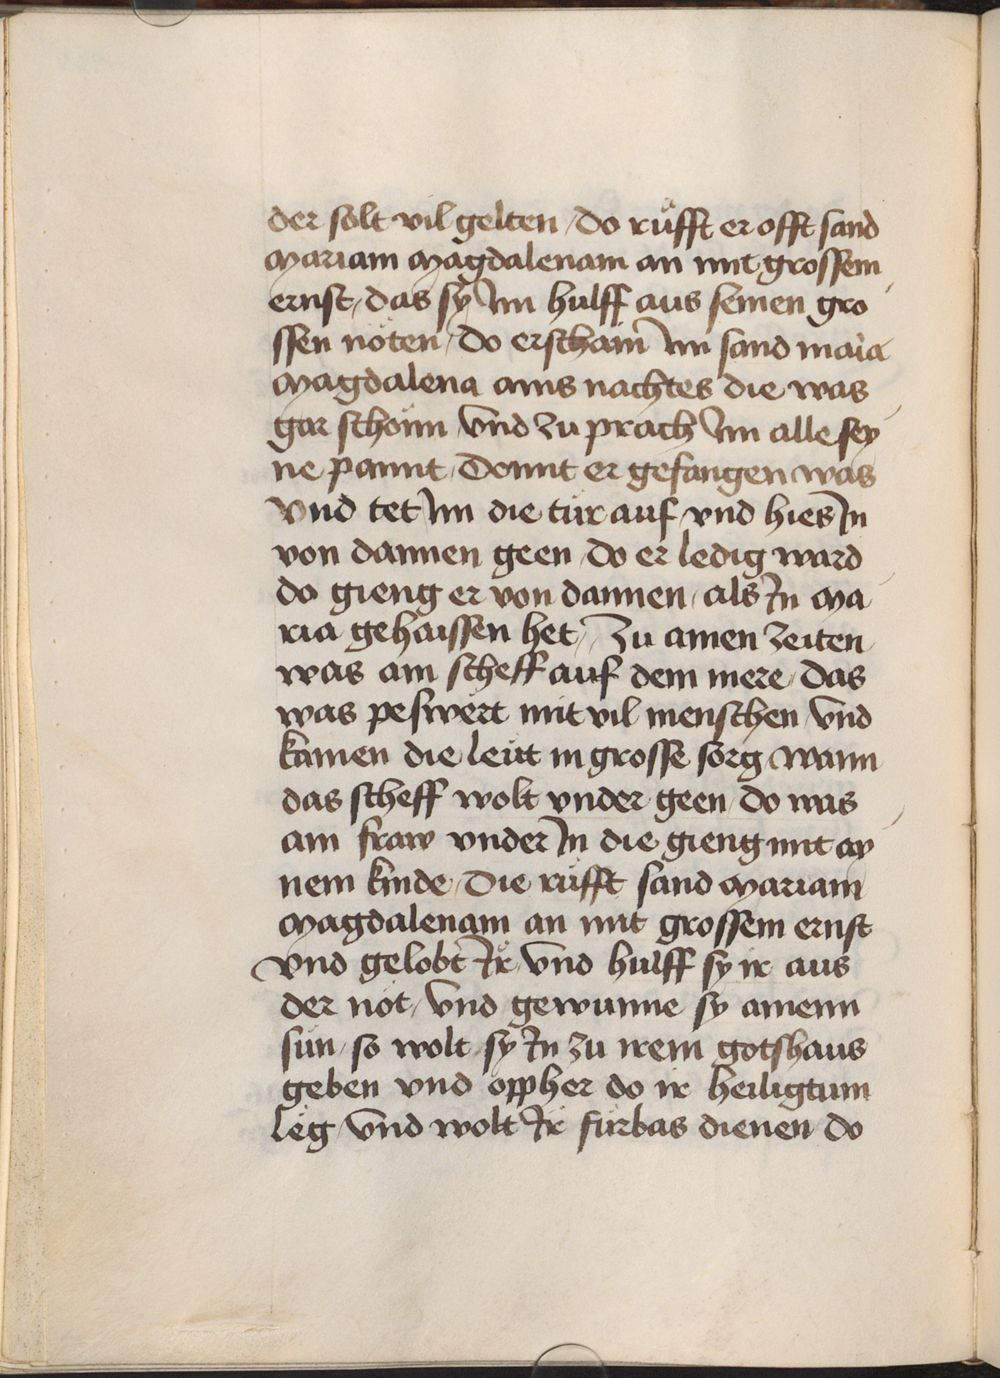 der solt vil gelten / do růfft er offt sand
Mariam Magdalenam an mit grossem
ernst / das sy Im hulff aus seinen gro
ssen nöten / do erschain Im sand maria
Magdalena ains nachtes die was
gar schönn / vnd zu prach Im alle sey
ne pannt / Domit er gefangen was
vnd tet Im die tür auf / vnd hies In
von dannen geen / do er ledig ward
do gieng er von dannen / als In Ma
ria gehaissen het / Zu ainen zeiten
was ain scheff auf dem mere / das
was peswërt mit vil menschen / vnd
kamen die leüt in grosse sorg / wann
das scheff wolt vnder geen / do was
ain fraw vnder In die gieng mit ay
nem kinde / Die růfft sand Mariam
Magdalenam an mit grossem ernst
vnd gelobt Ir / vnd hulff sy ir aus
der nöt / vnd gewunne sy ainenn
sün / so wolt sy In zu irem gotshaus
geben vnd öppher do ir heiligtum
lëg / vnd wolt Ir fürbas dienen / do